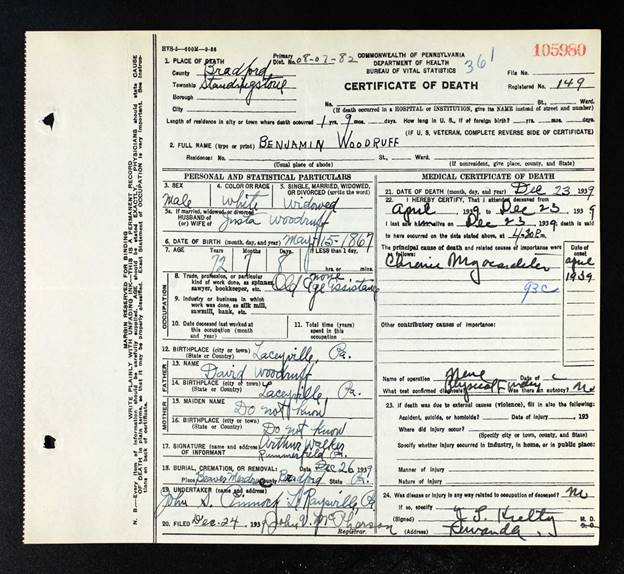 HVS-5—600M—9-36
105980
1. PLACE OF DEATH
County Bradford
Township Standingstone
Borough
City
Primary Dist. No. 08-07-82
COMMONWEALTH OF PENNSYLVANIA
DEPARTMENT OF HEALTH
BUREAU OF VITAL STATISTICS
361
CERTIFICATE OF DEATH
File No.
Registered No. 149
No. St., Ward.
(If death occurred in a HOSPITAL or INSTITUTION, give its NAME instead of street and number)
Length of residence in city or town where death occurred 1 yrs. 9 mos. days. How long in U. S., if of foreign birth? yrs. mos. days.
(IF U. S. VETERAN, COMPLETE REVERSE SIDE OF CERTIFICATE)
2. FULL NAME (type or print) BENJAMIN WOODRUFF
Residence: No. St., Ward.
(Usual place of abode) (If nonresident, give place, county, and State)
PERSONAL AND STATISTICAL PARTICULARS
3. SEX
Male
4. COLOR OR RACE
White
5. SINGLE, MARRIED, WIDOWED, OR DIVORCED (write the word)
Widowed
5a. If married, widowed, or divorced
HUSBAND of
(or) WIFE of Woodruff
6. DATE OF BIRTH (month, day, and year) May 15-1867
7. AGE Years Months Days If LESS than 1 day, hrs. or min.
72 7 8
OCCUPATION
8. Trade, profession, or particular kind of work done, as spinner, sawyer, bookkeeper, etc. none
Old Age Assistance
9. Industry or business in which work was done, as silk mill, sawmill, bank, etc.
10. Date deceased last worked at this occupation (month and year)
11. Total time (years) spent in this occupation
12. BIRTHPLACE (city or town) Laceyville, Pa.
(State or Country)
FATHER
13. NAME David Woodruff
14. BIRTHPLACE (city or town) Laceyville, Pa.
(State or Country)
MOTHER
15. MAIDEN NAME Do not know
16. BIRTHPLACE (city or town) Do not know
(State or Country)
17. SIGNATURE (name and address) Arthur Walker
OF INFORMANT Rummerfield Pa.
18. BURIAL, CREMATION, OR REMOVAL: Date Dec 26 1939
Place Beaver Meadow County Bradford State Pa.
19. UNDERTAKER (name and address)
John S. LeRaysville, Pa
20. FILED Dec. 24 1939 John V. McPherson
Registrar.
MEDICAL CERTIFICATE OF DEATH
21. DATE OF DEATH (month, day, and year) Dec 23 1939
22. I HEREBY CERTIFY, That I attended deceased from
April 1939 to Dec 23 1939
I last saw him Dec 23 1939, death is said
to have occurred on the date stated above, at 4:30 P. m.
The principal cause of death and related causes of importance were as follows:
Date of onset
Chronic Myocarditis April
1939
93c
Other contributory causes of importance:
Name of operation None Date of
What test confirmed diagnosis? Physical Finding Was there an autopsy? No
23. If death was due to external causes (violence), fill in also the following:
Accident, suicide, or homicide? Date of injury 193
Where did injury occur?
(Specify city or town, county, and State)
Specify whether injury occurred in industry, in home, or in public place:
Manner of injury
Nature of injury
24. Was disease or injury in any way related to occupation of deceased? No
If so, specify
(Signed) Kielty M. D.
(Address) Towanda
MARGIN RESERVED FOR BINDING
WRITE PLAINLY WITH UNFADING INK—THIS IS A PERMANENT RECORD